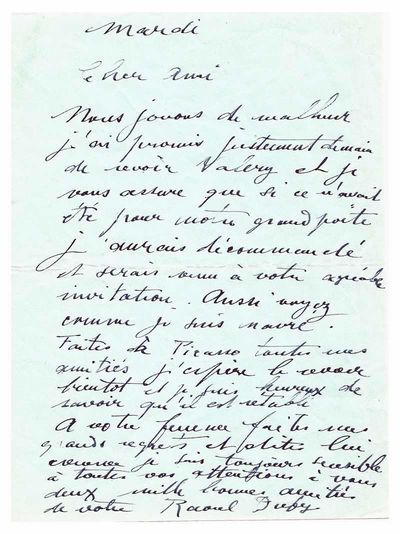 Mardi
Cher ami
Nous jouons de malheur
j'ai promis justement demain
de revoir Valery et je
vous assure que si ce n'avait
été pour notre grand poète
j'aurais décommandé
et serais venu à votre agréable
invitation. Aussi voyez
comme je suis navré.
Faites à Picasso toutes mes
amitiés j'espère le revoir
bientot et je suis heureux de
savoir qu'il est rétabli
A votre femme faites mes
grands regrets et dites lui
comme je suis toujours sensible
à toutes vos attentions à vous
deux mille bonnes amitiés
de votre Raoul Dufy